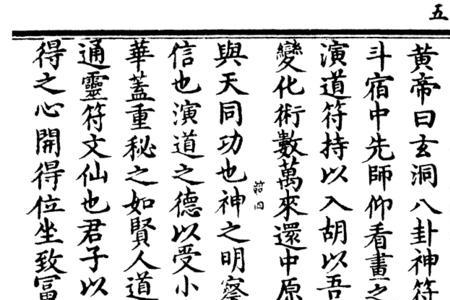 五
黃帝曰玄洞八卦神符
斗宿中先師仰看畫之
演道符持以入胡以吾
變化術數萬來還中原
與天同功也神之明察
信也演道之德以受小
華蓋重秘之如賢人道
通靈符文仙也君子以
得之心開得位坐致冨